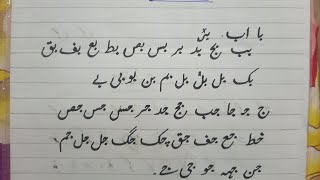 با اب بڑ
بب بج بد بر بس بص بط بع بف بق
بک بل بل بل بم بن بو بی بے
ج جر جا جب جج جد جر جس جس جص
خط جع جف جق چک جگ جل جل جم۔
جن جہہ جو جی جے۔